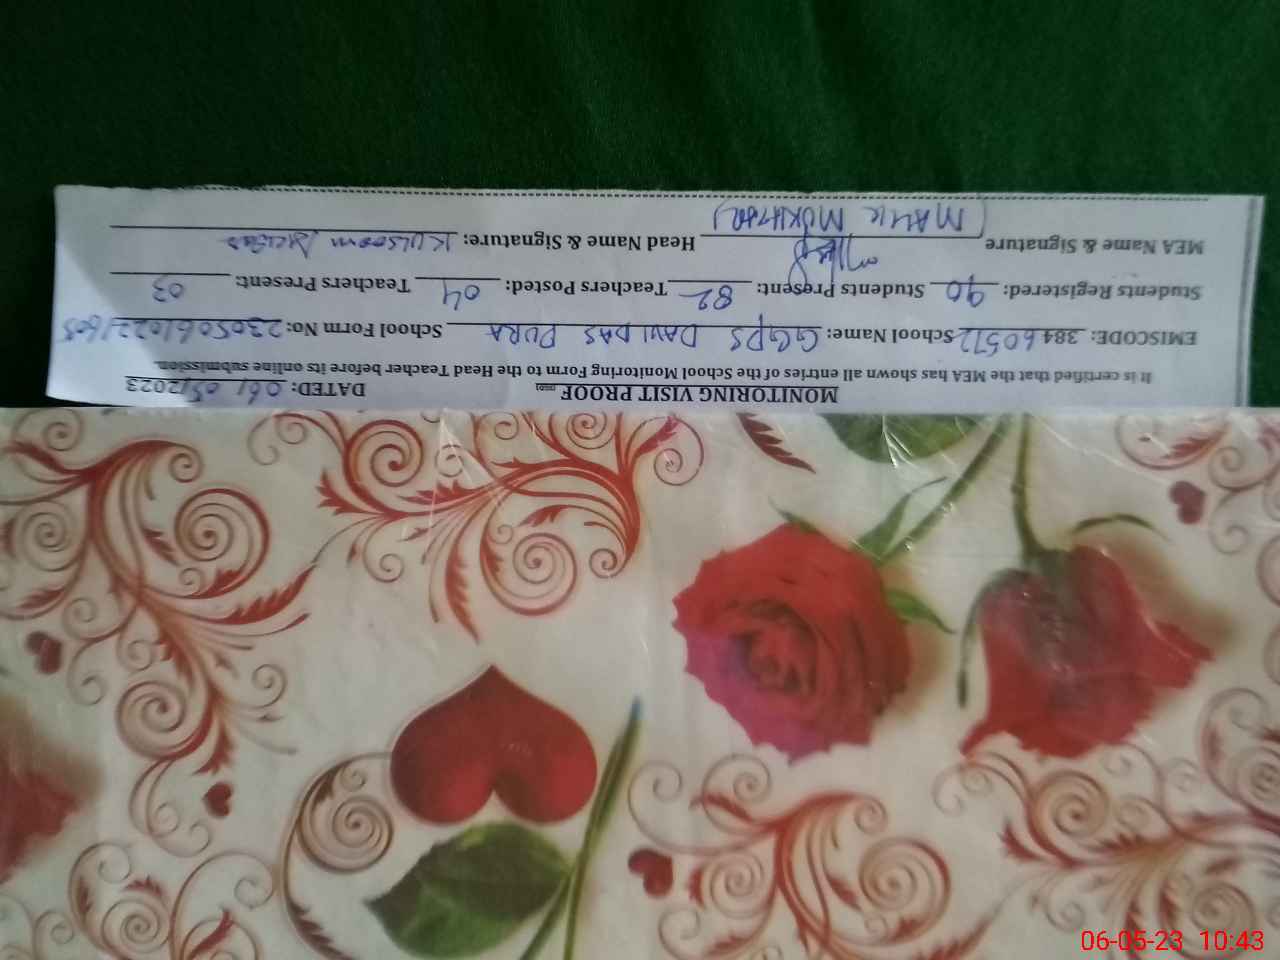 MONITORING VISIT PROOF DATED: 06/05/2023
It is certified that the MEA has shown all entries of the School Monitoring Form to the Head Teacher before its online submission.
EMISCODE: 38460512 School Name: GGPS DAVIDAS PURA School Form No: 
Students Registered: 90 Students Present: 82 Teachers Posted: 04 Teachers Present: 03
MEA Name & Signature Head Name & Signature: Kulsoom
(MALIK MUKHTAR)
06-05-23 10:43